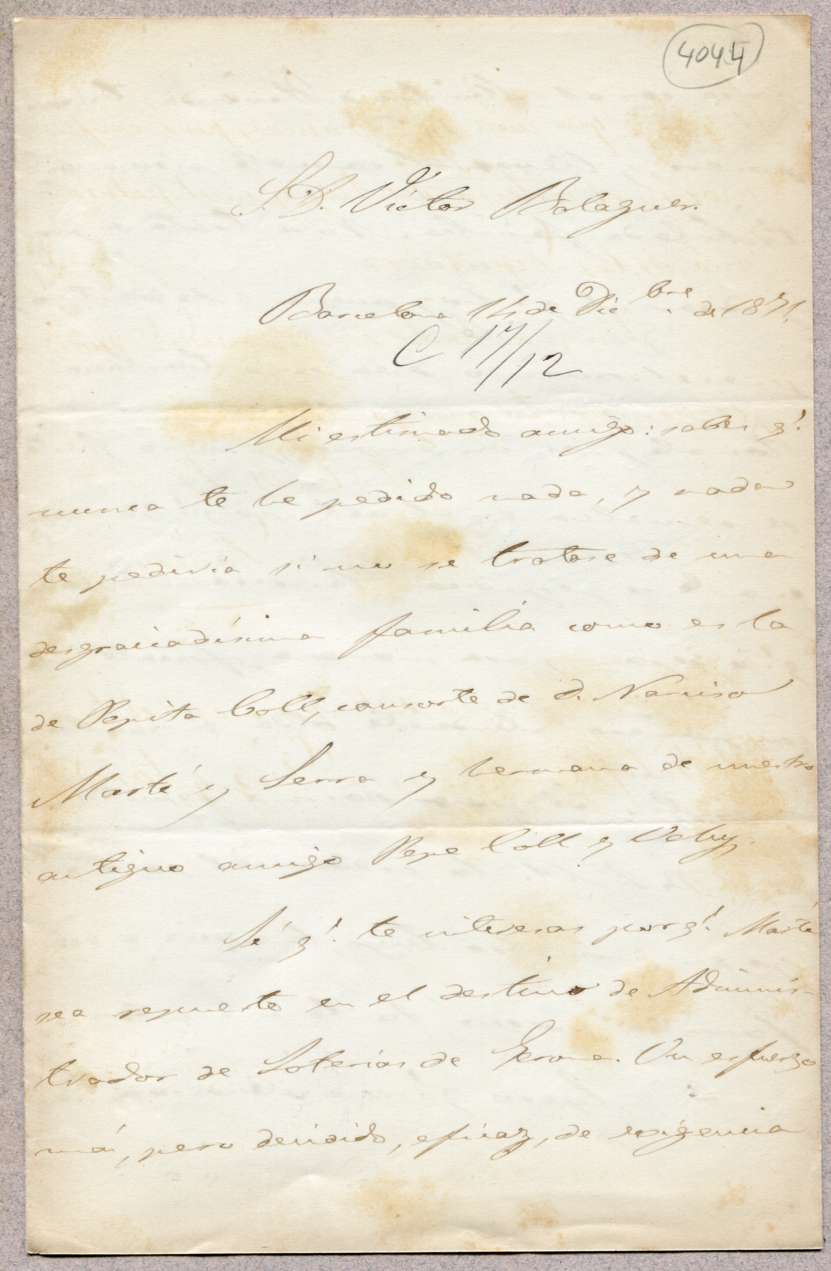 4044
S. D. Víctor Balaguer.
Barcelona 14 de Dicbre. de 1871.
C 17/12
Mi estimado amigo: sabes q.'
nunca te he pedido nada, y nada
te pediria si no se tratase de una
desgraciadísima familia como es la
de Pepita Coll, consorte de D. Narciso
Martí y Serra y hermana de nuestro
antiguo amigo Pepe Coll y Vehy.
Sé q.' te interesas porq.' Martí
sea repuesto en el destino de Adminis-
trador de Loterías de Gerona. Un esfuerzo
más, pero decidido, eficaz, de exigencia